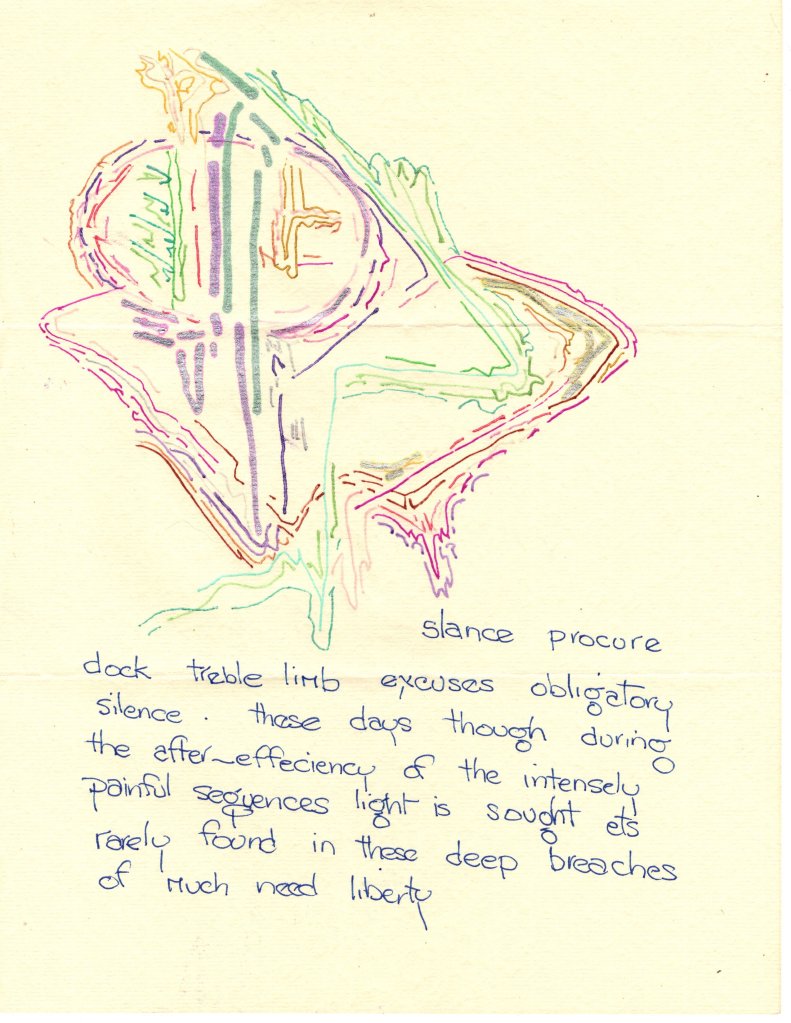 slance procure
dock treble limb excuses obligatory
silence. these days though during
the after-effeciency of the intensely
painful sequences light is sought ets
rarely found in these deep breaches
of much need liberty